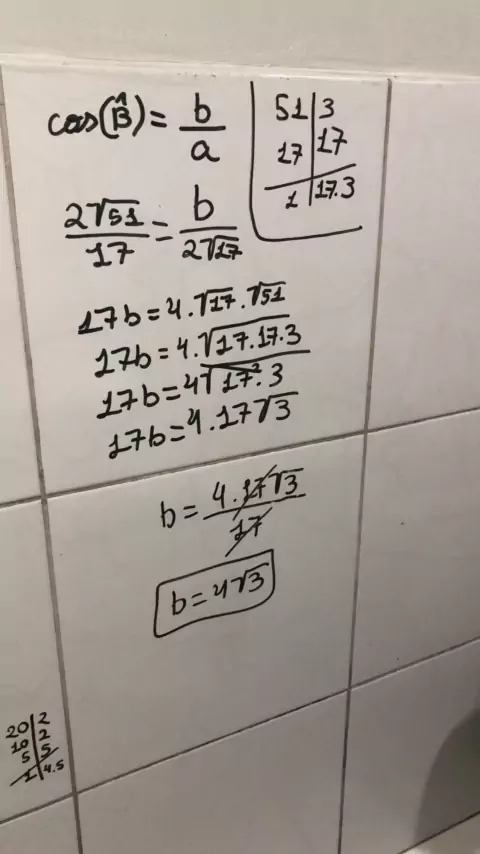 cos(B̂) = b/a
51 | 3
17 | 17
1 | 17.3
2√51/17 = b/2√17
17b = 4.√17.√51
17b = 4.√17.17.3
17b = 4√17².3
17b = 4.17√3
b = 4.17√3/17
b = 4√3
20 | 2
10 | 2
5 | 5
1 | 4.5